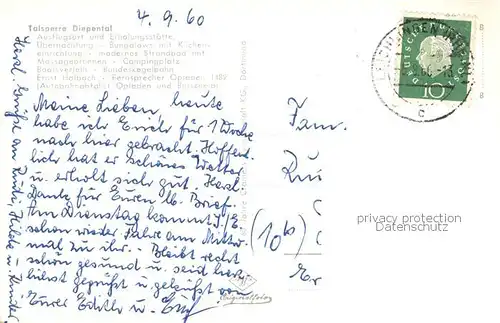 4. 9. 60
Talsperre Diepental
Ausflugsort und Erholungsstätte,
Übernachtung - Bungalows mit Küchen-
einrichtung - modernes Strandbad mit
Massagebrausen - Campingplatz
Bootsverleih - Bundeskegelbahn
Ernst Halbach - Fernsprecher Opladen
Meine Lieben, heute
habe ich Erich für 1 Woche
nach hier gebracht. Hoffent-
lich hat er schönes Wetter
u. erholt sich gut. Herzl.
Dank für Euren lb. Brief.
Am Dienstag kommt
schon wieder fahre am Mittw.
mal zu ihr. - Bleibt recht
schön gesund u. seid herz-
lichst gegrüßt u. geküßt von
Eurer Edith u.
Herzl. Grüße an Rudi, Hilde u. Kinder
Fam.
(10b)
DEUTSCHE
10
c
privacy protection
Datenschutz
Originalfoto